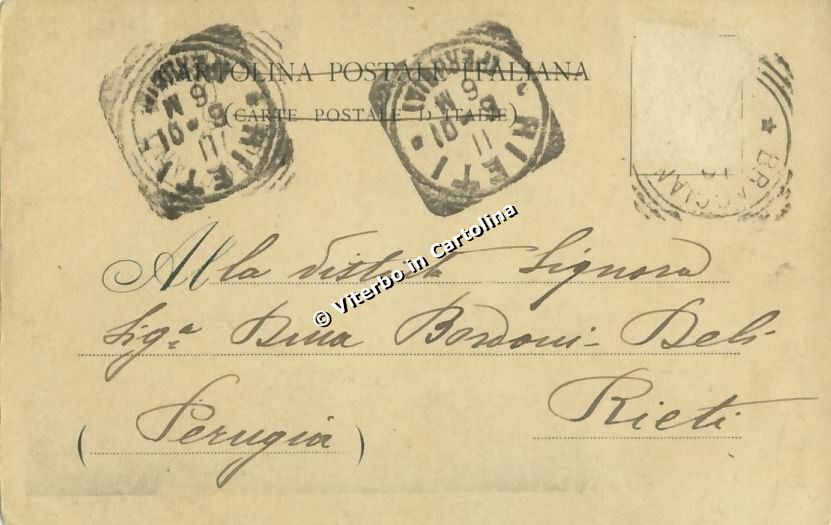 CARTOLINA POSTALE ITALIANA
(CARTE POSTALE D'ITALIE)
RIETI
(PERUGIA)
11
5-01
6 M
RIETI
11
5-01
6 M
BRACCIAN
Alla distinta Signora
Sig.ª Dina Bordoni-Deli
Rieti
(Perugia)
© Viterbo in Cartolina